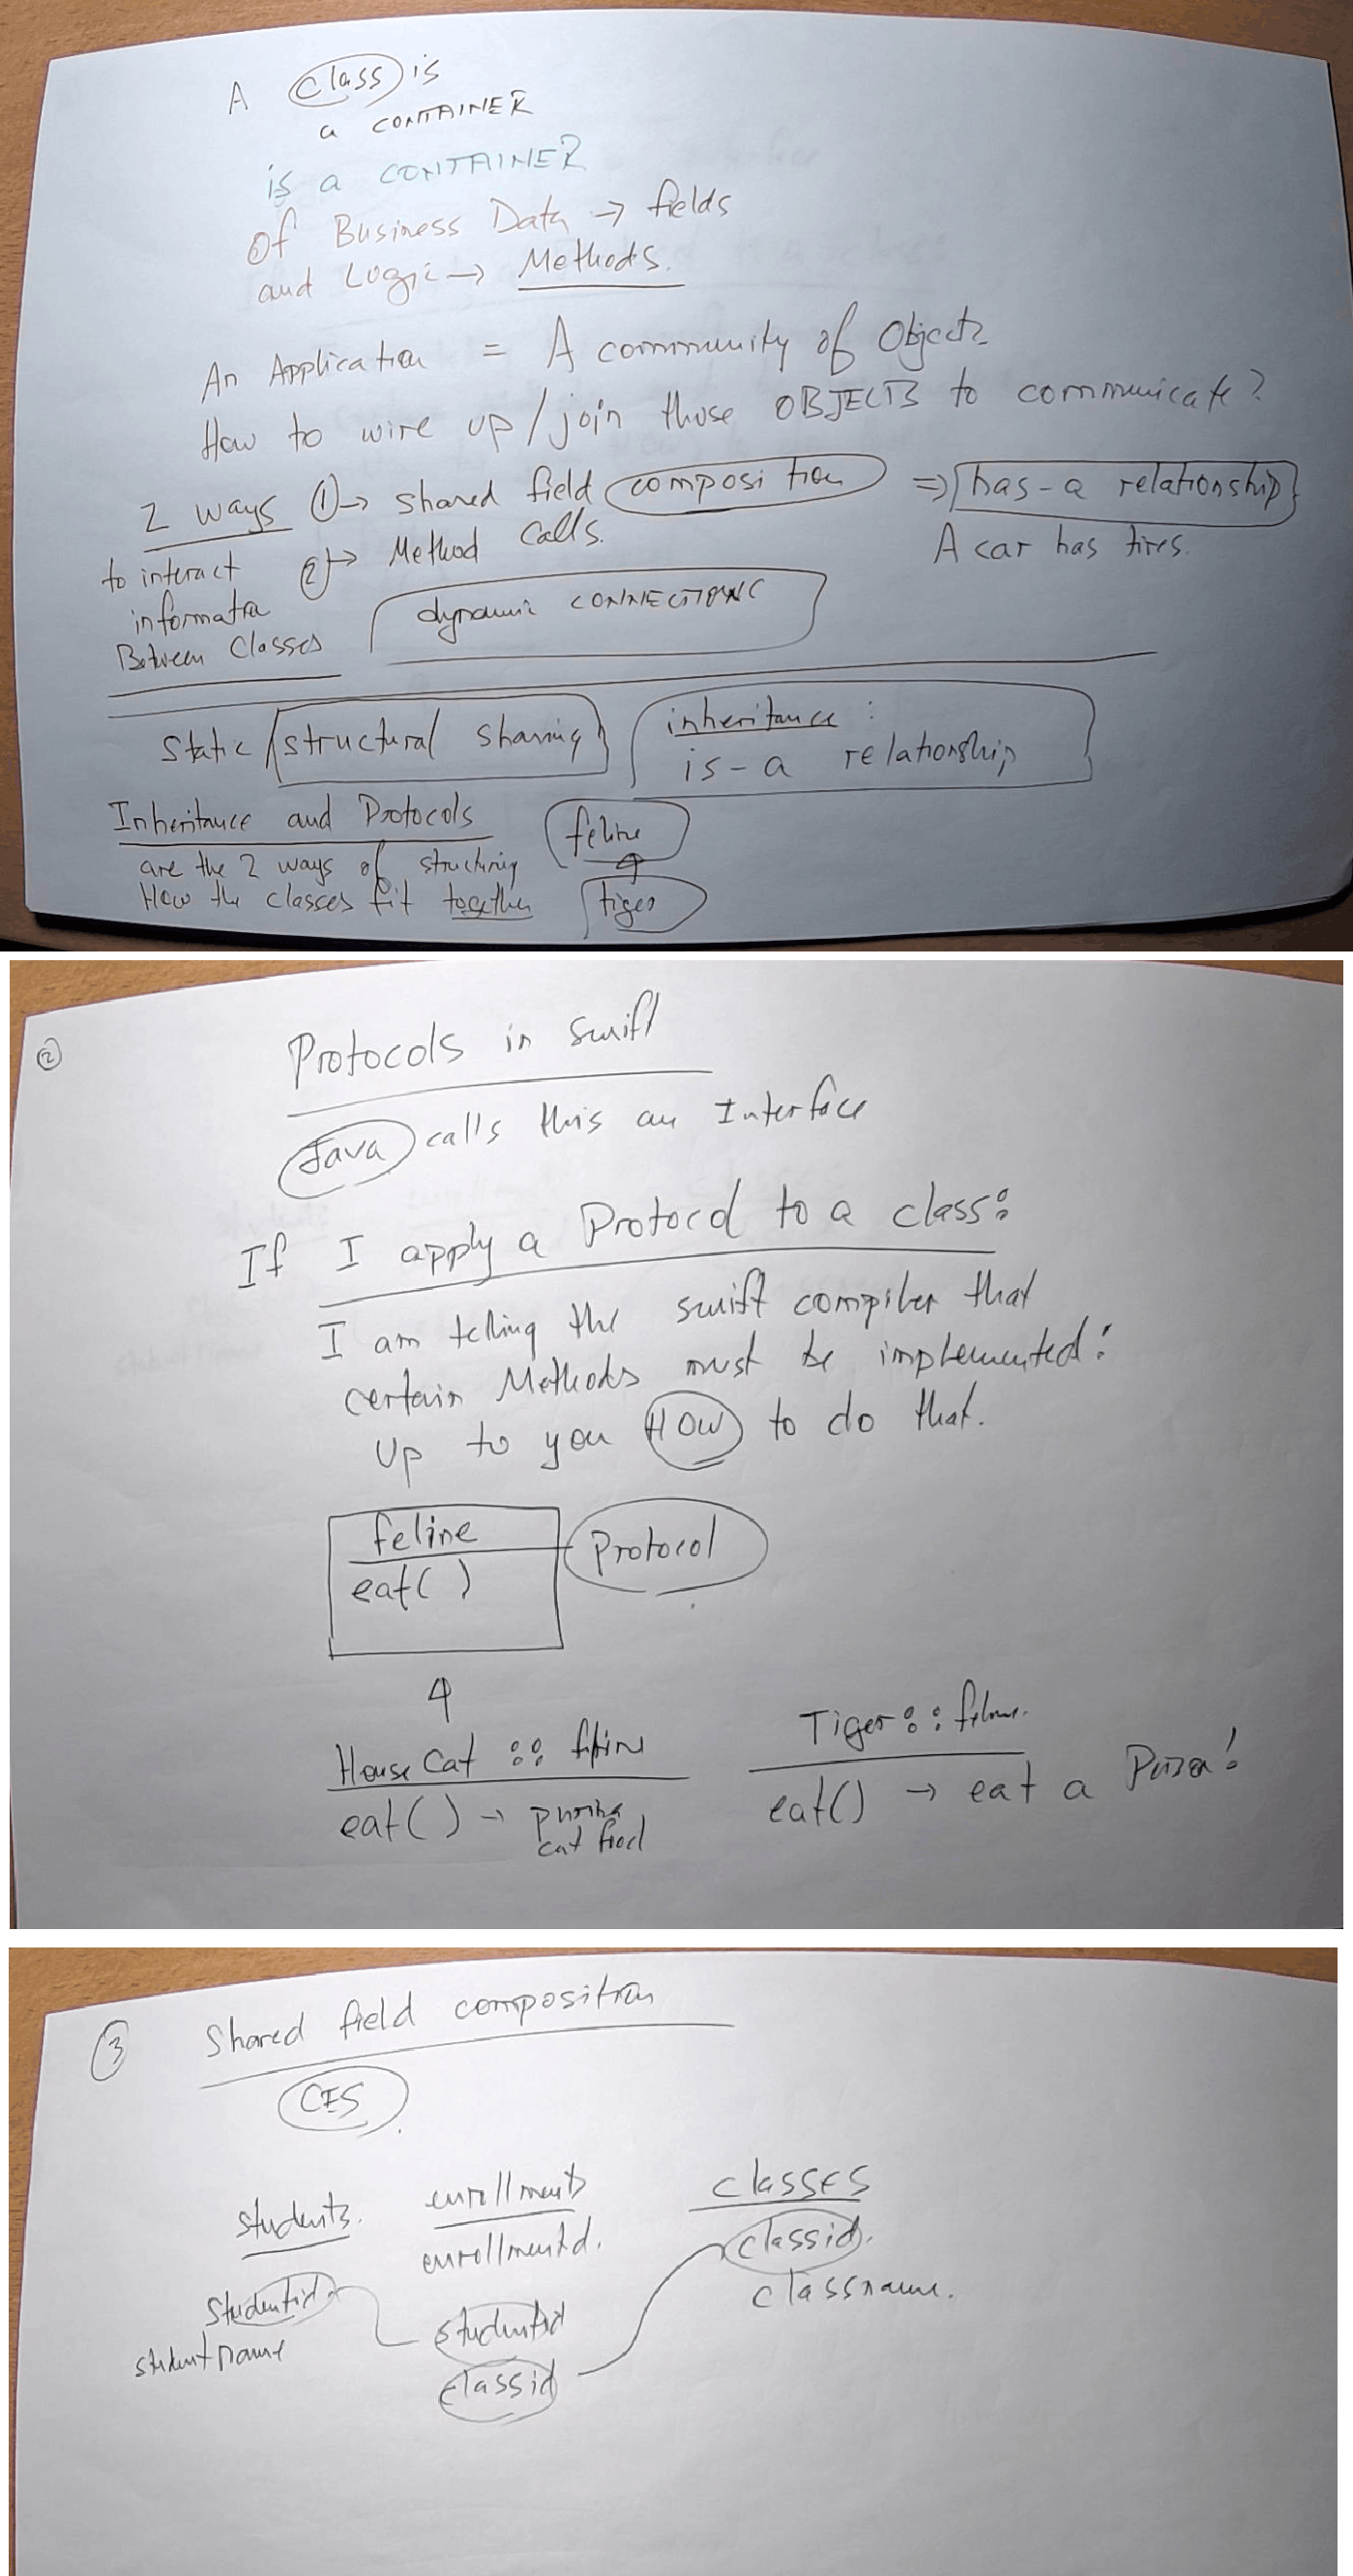 A class is
a CONTAINER
is a CONTAINER
Of Business Data → fields
and Logic → Methods.
An Application = A community of Objects
How to wire up/join those OBJECTS to communicate?
2 ways ①→ shared field composition ⇒ has-a relationship
to interact ②→ Method Calls. A car has tires.
information
Between Classes dynamic CONNECTIONS
Static / structural sharing inheritance :
is-a relationship
Inheritance and Protocols feline
are the 2 ways of structuring
How the classes fit together tiger
② Protocols in Swift
Java calls this an Interface
If I apply a Protocol to a class:
I am telling the swift compiler that
certain Methods must be implemented!
Up to you HOW to do that.
feline Protocol
eat( )
House Cat :: feline Tiger :: feline.
eat( ) → purina eat() → eat a
cat food
③ Shared field composition
CIS
students. enrollments classes
enrollmentid. classid.
studentid classname.
studentname studentid
classid